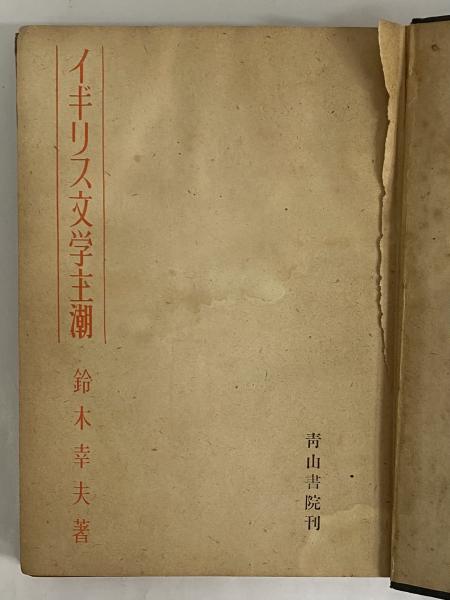 イギリス文学主潮
鈴木幸夫著
青山書院刊